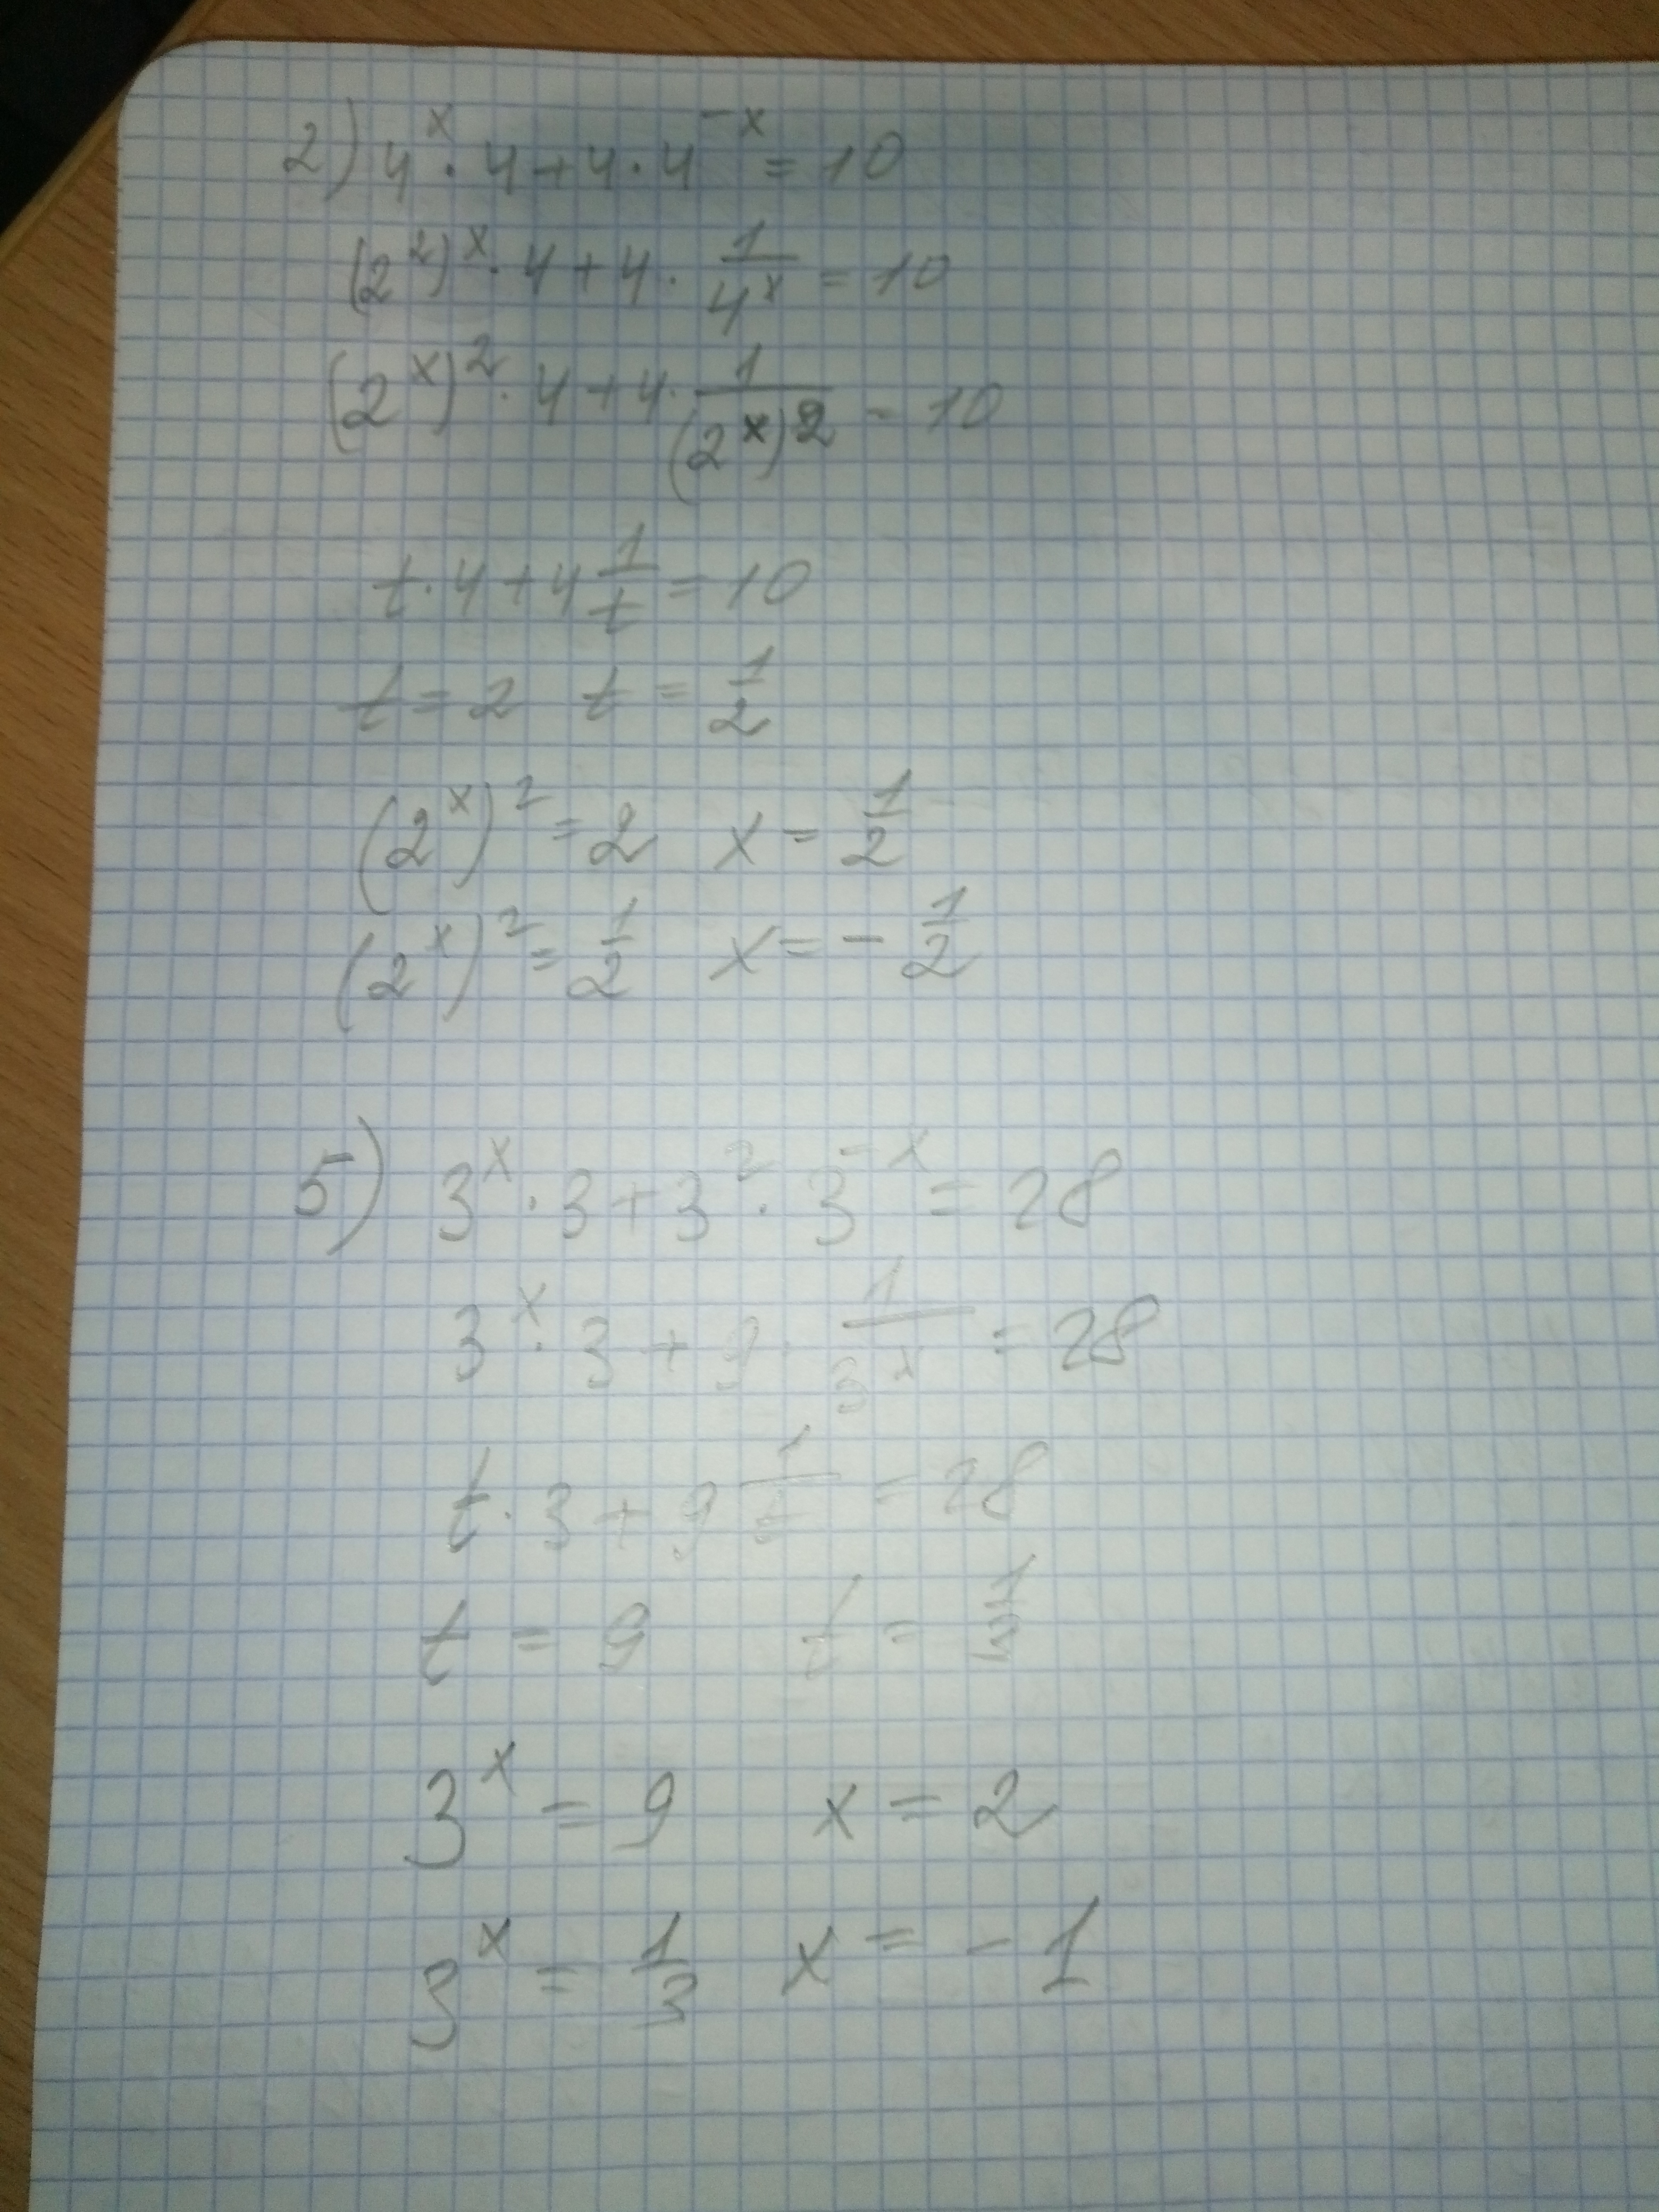 2) 4^x · 4 + 4 · 4^-x = 10
(2^2)^x · 4 + 4 · 1/4^x = 10
(2^x)^2 · 4 + 4 · 1/(2^x)^2 = 10
t · 4 + 4 1/t = 10
t = 2 t = 1/2
(2^x)^2 = 2 x = 1/2
(2^x)^2 = 1/2 x = - 1/2
5) 3^x · 3 + 3^2 · 3^-x = 28
3^x · 3 + 9 · 1/3^x = 28
t · 3 + 9 1/t = 28
t = 9 t = 1/3
3^x = 9 x = 2
3^x = 1/3 x = - 1